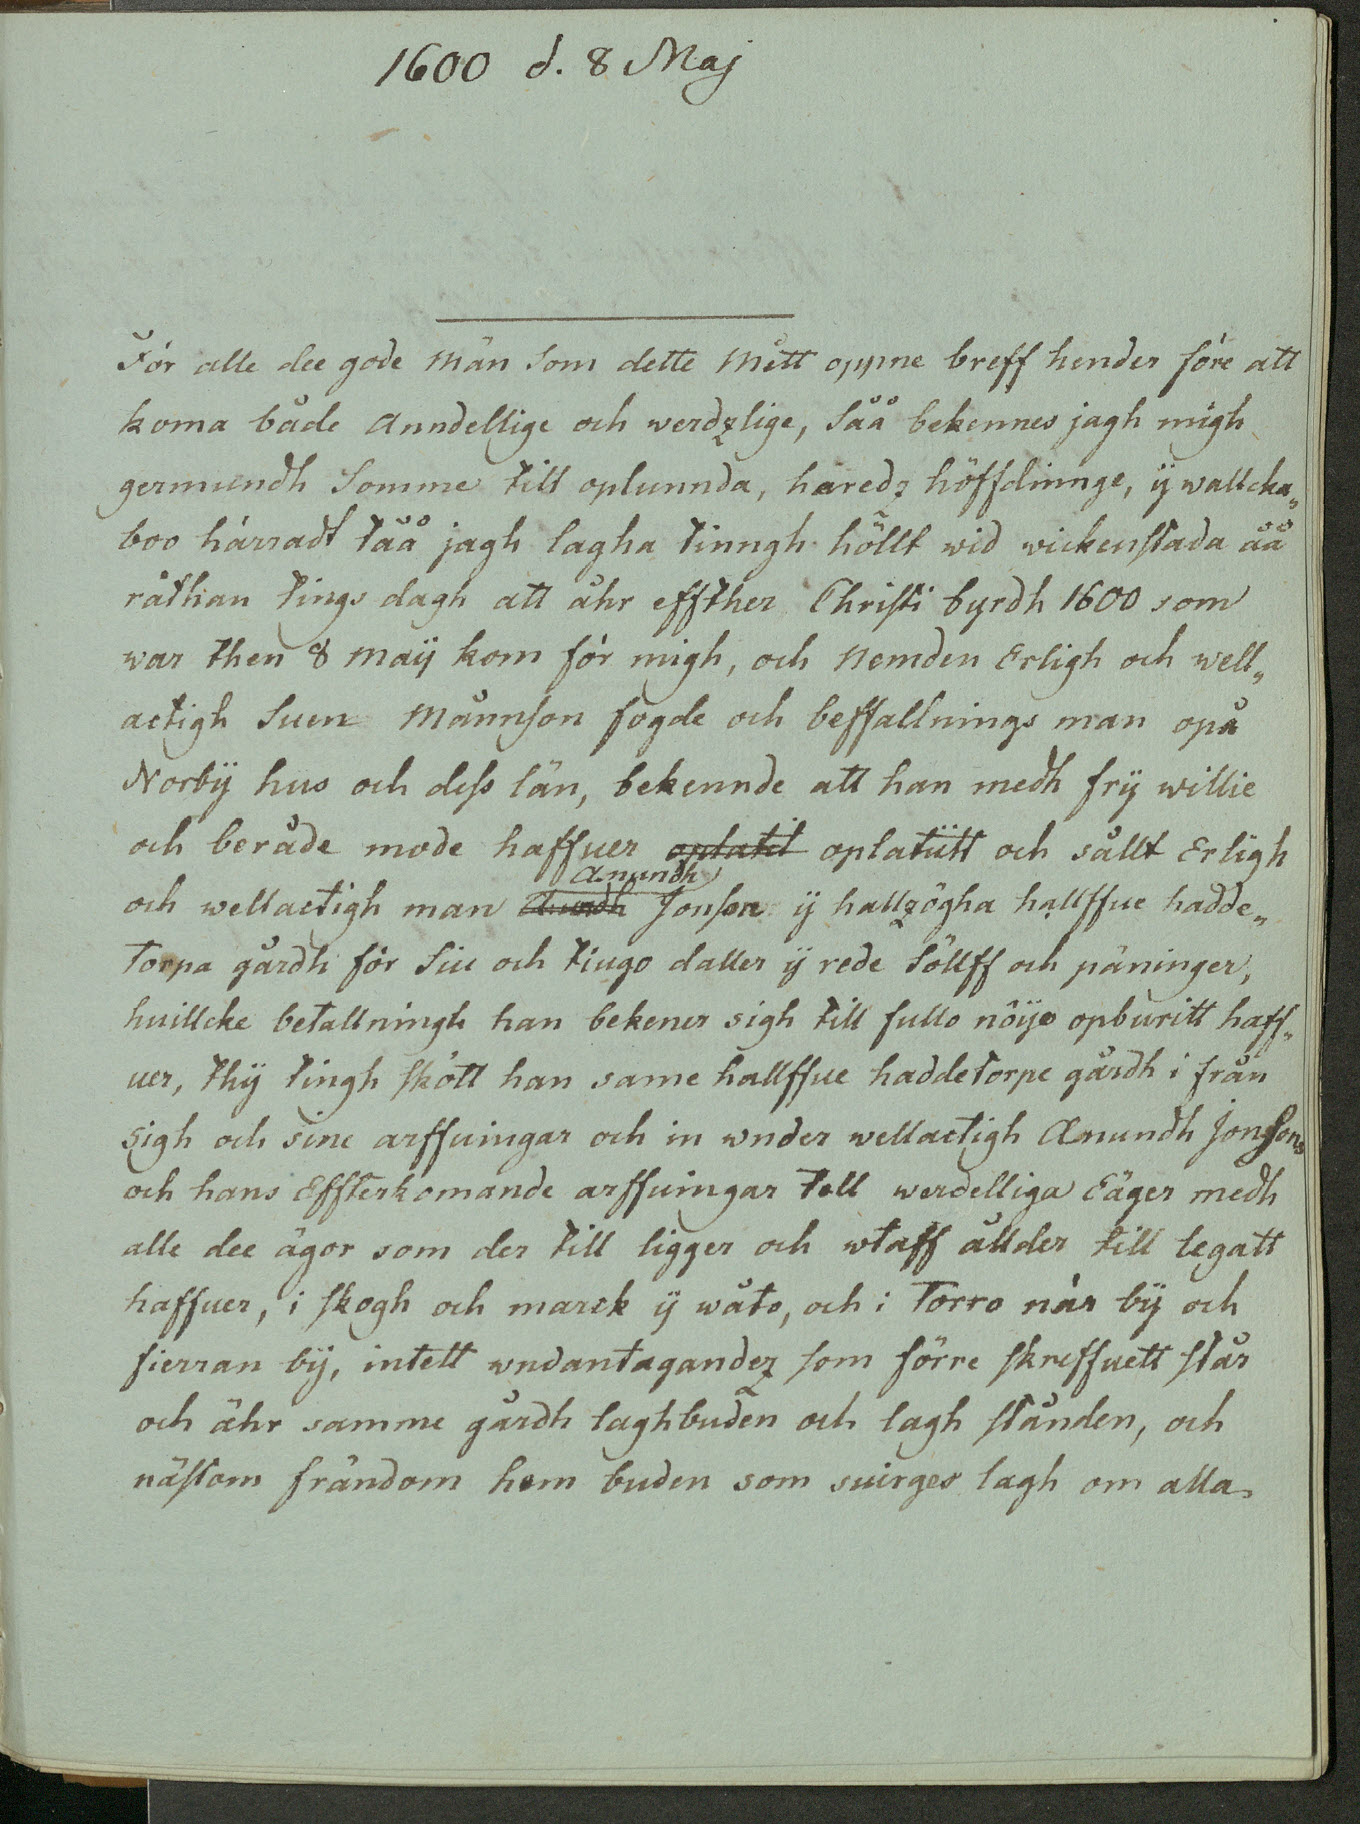 1600 d. 8 Maj
För alle dee gode Män Som dette Mitt oppne breff hender före att
koma både Anndellige och werdzlige, Såå bekennes jagh migh
germundh Somme till oplunnda, häredz höffdinnge, ÿ wallcka„
boo härradt tåå jagh lagha tinngh höllt wid wickenstada åå
räthan tings dagh att åhr effther Christi byrdh 1600 som
war then 8 Maÿ kom för migh, och Nemden Erligh och well„
actigh Suen Månnson fogde och beffallnings man opå
Norbÿ hus och dess län, bekennde att han medh frÿ willie
och beråde mode haffuer oplatit oplatiitt och sållt Erligh
Anundh
och wellactigh man Aundh Jonson ÿ hallzögha hallffue hadde„
torpa gårdh för Siu och tiugo daller ÿ rede Söllff och päninger,
huillcke betallningh han bekener sigh till fullo nöÿe opburitt haff„
uer, thÿ tingh skött han same hallffue haddetorpe gårdh i från
sigh och sine arffuingar och in wnder wellactigh Anundh Jonsons
och hans Effterkomande arffuingar till werdelliga Eäger medh
alle dee ägor som der till ligger och wtaff ållder till legatt
haffuer, i skogh och marck ÿ wåto, och i Torro när bÿ och
fierran bÿ, intett wndantagandez som förre skreffuett står
och ähr samme gårdh laghbuden och lagh stånden, och
nästom frändom hem buden som suirges lagh om alla